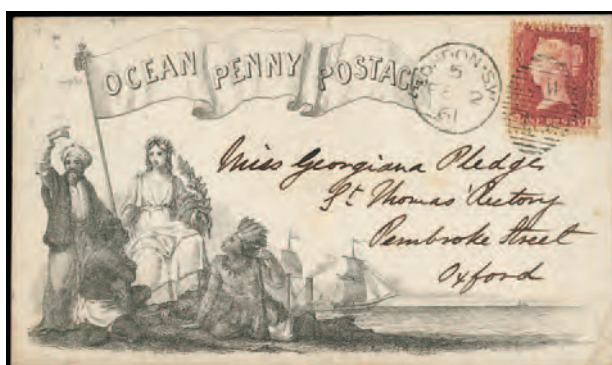 OCEAN PENNY POSTAGE
LONDON·S.W
5
FE 2
61
Miss Georgiana Pledge
St Thomas' Rectory
Pembroke Street
Oxford